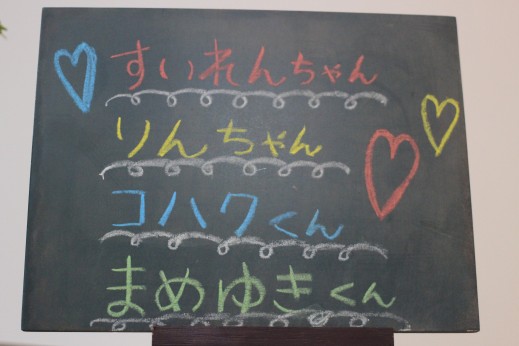 すいれんちゃん
りんちゃん
コハクくん
まめゆきくん